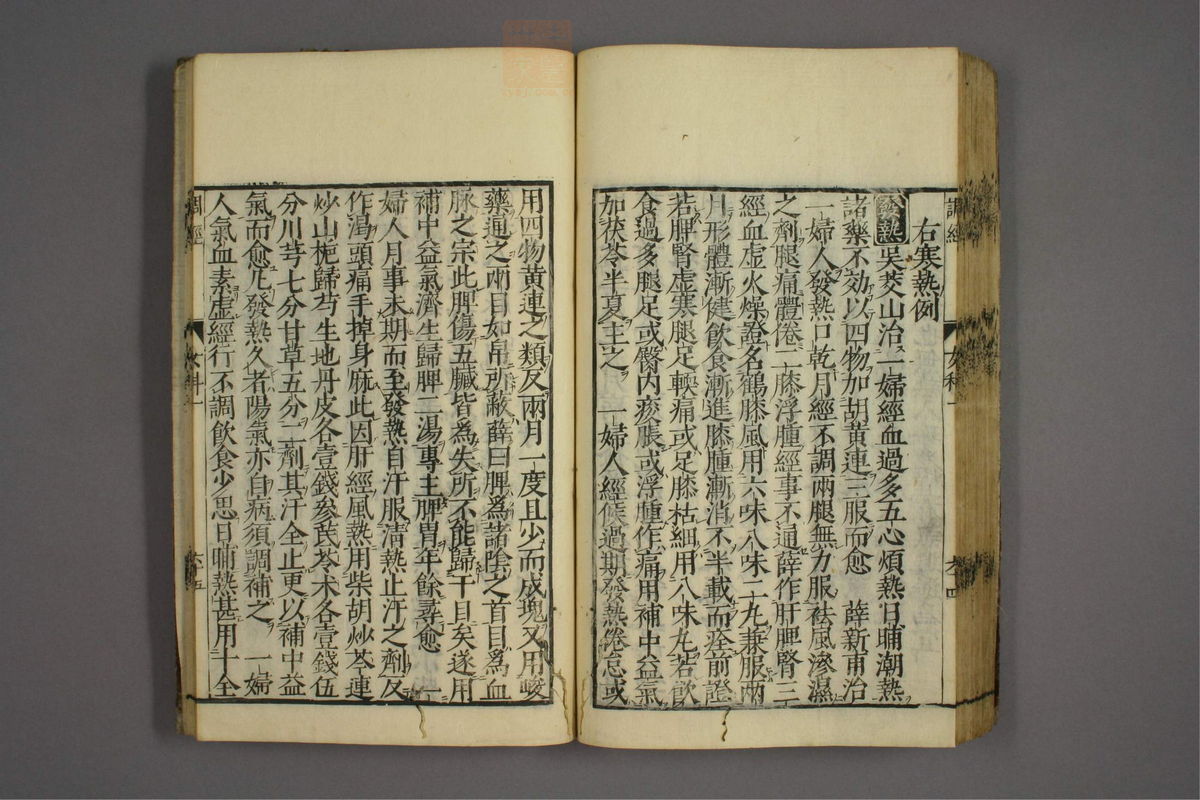 右寒熱例
發熱吳茭山治一婦經血過多五心煩熱日晡潮熱
諸藥不効以四物加胡黃連三服而愈　薛新甫治
一婦人發熱口乾月經不調兩腿無力服袪風滲濕
之劑腿痛體倦二膝浮腫經事不通薛作肝脾腎三
經血虛火燥證名鶴膝風用六味八味二丸兼服兩
月形體漸健飲食漸進膝腫漸消不半載而痊前證
若脾腎虛寒腿足軟痛或足膝枯細用八味丸若飲
食過多腿足或臀內痠脹或浮腫作痛用補中益氣
加茯苓半夏主之　一婦人經候過期發熱倦怠或
用四物黃連之類反兩月一度且少而成塊又用峻
藥通之兩目如帛所蔽薛曰脾爲諸陰之首目爲血
脉之宗此脾傷五臟皆爲失所不能歸于目矣遂用
補中益氣濟生歸脾二湯專主脾胃年餘尋愈　一
婦人月事未期而至發熱自汗服清熱止汗之劑反
作渴頭痛手掉身麻此因肝經風熱用柴胡炒芩連
炒山梔歸芍生地丹皮各壹錢參芪苓朮各壹錢伍
分川芎七分甘草五分二劑其汗全止更以補中益
氣而愈凡發熱久者陽氣亦自病須調補之　一婦
人氣血素虛經行不調飲食少思日晡熱甚用十全
調經
女科一
六十四
調經
女科一
六十五